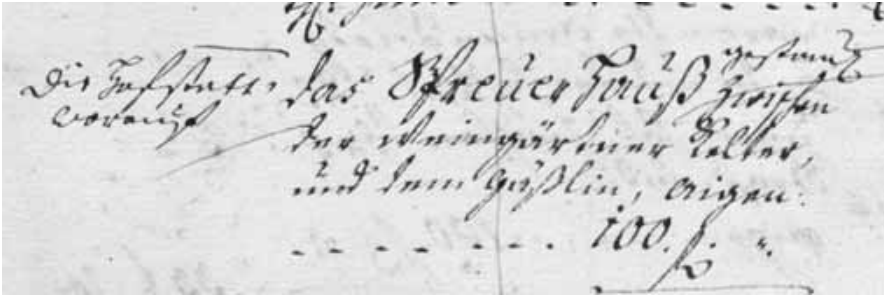 Die Hofstatt,
worauf
das Spreuer Hauß gestand
zwischen
der Weingärtner Kelter,
und dem Gäßlin, aigen.
100. f. ".